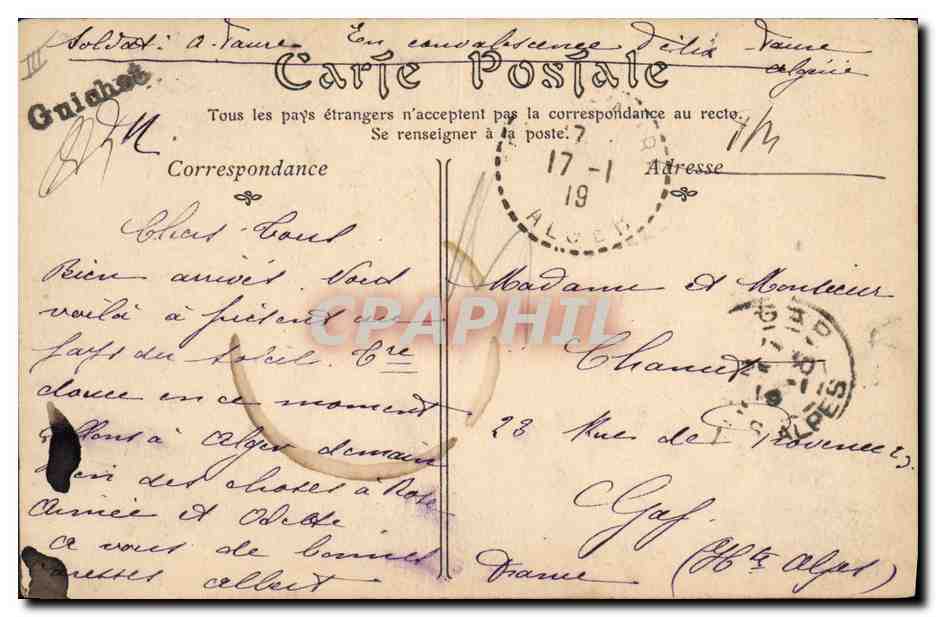 Soldat: A. Faure En convalescence Félix Faure
Algérie
Guichet
Carte Postale
Tous les pays étrangers n'acceptent pas la correspondance au recto.
Se renseigner à la poste.
17 -1
19
ALGER
Correspondance
Adresse
Chers Tous
Bien arrivés. Nous
voilà à présent au
pays du soleil. Tre
douce en ce moment
Allons à Alger demain
bien des choses à Rose
Aimée et Odette
A vous de bonnes
Albert
Madame et Monsieur
23 Rue de Provence 23
Gap
France (Htes Alpes)
GAP
ALPES
CPAPHIL